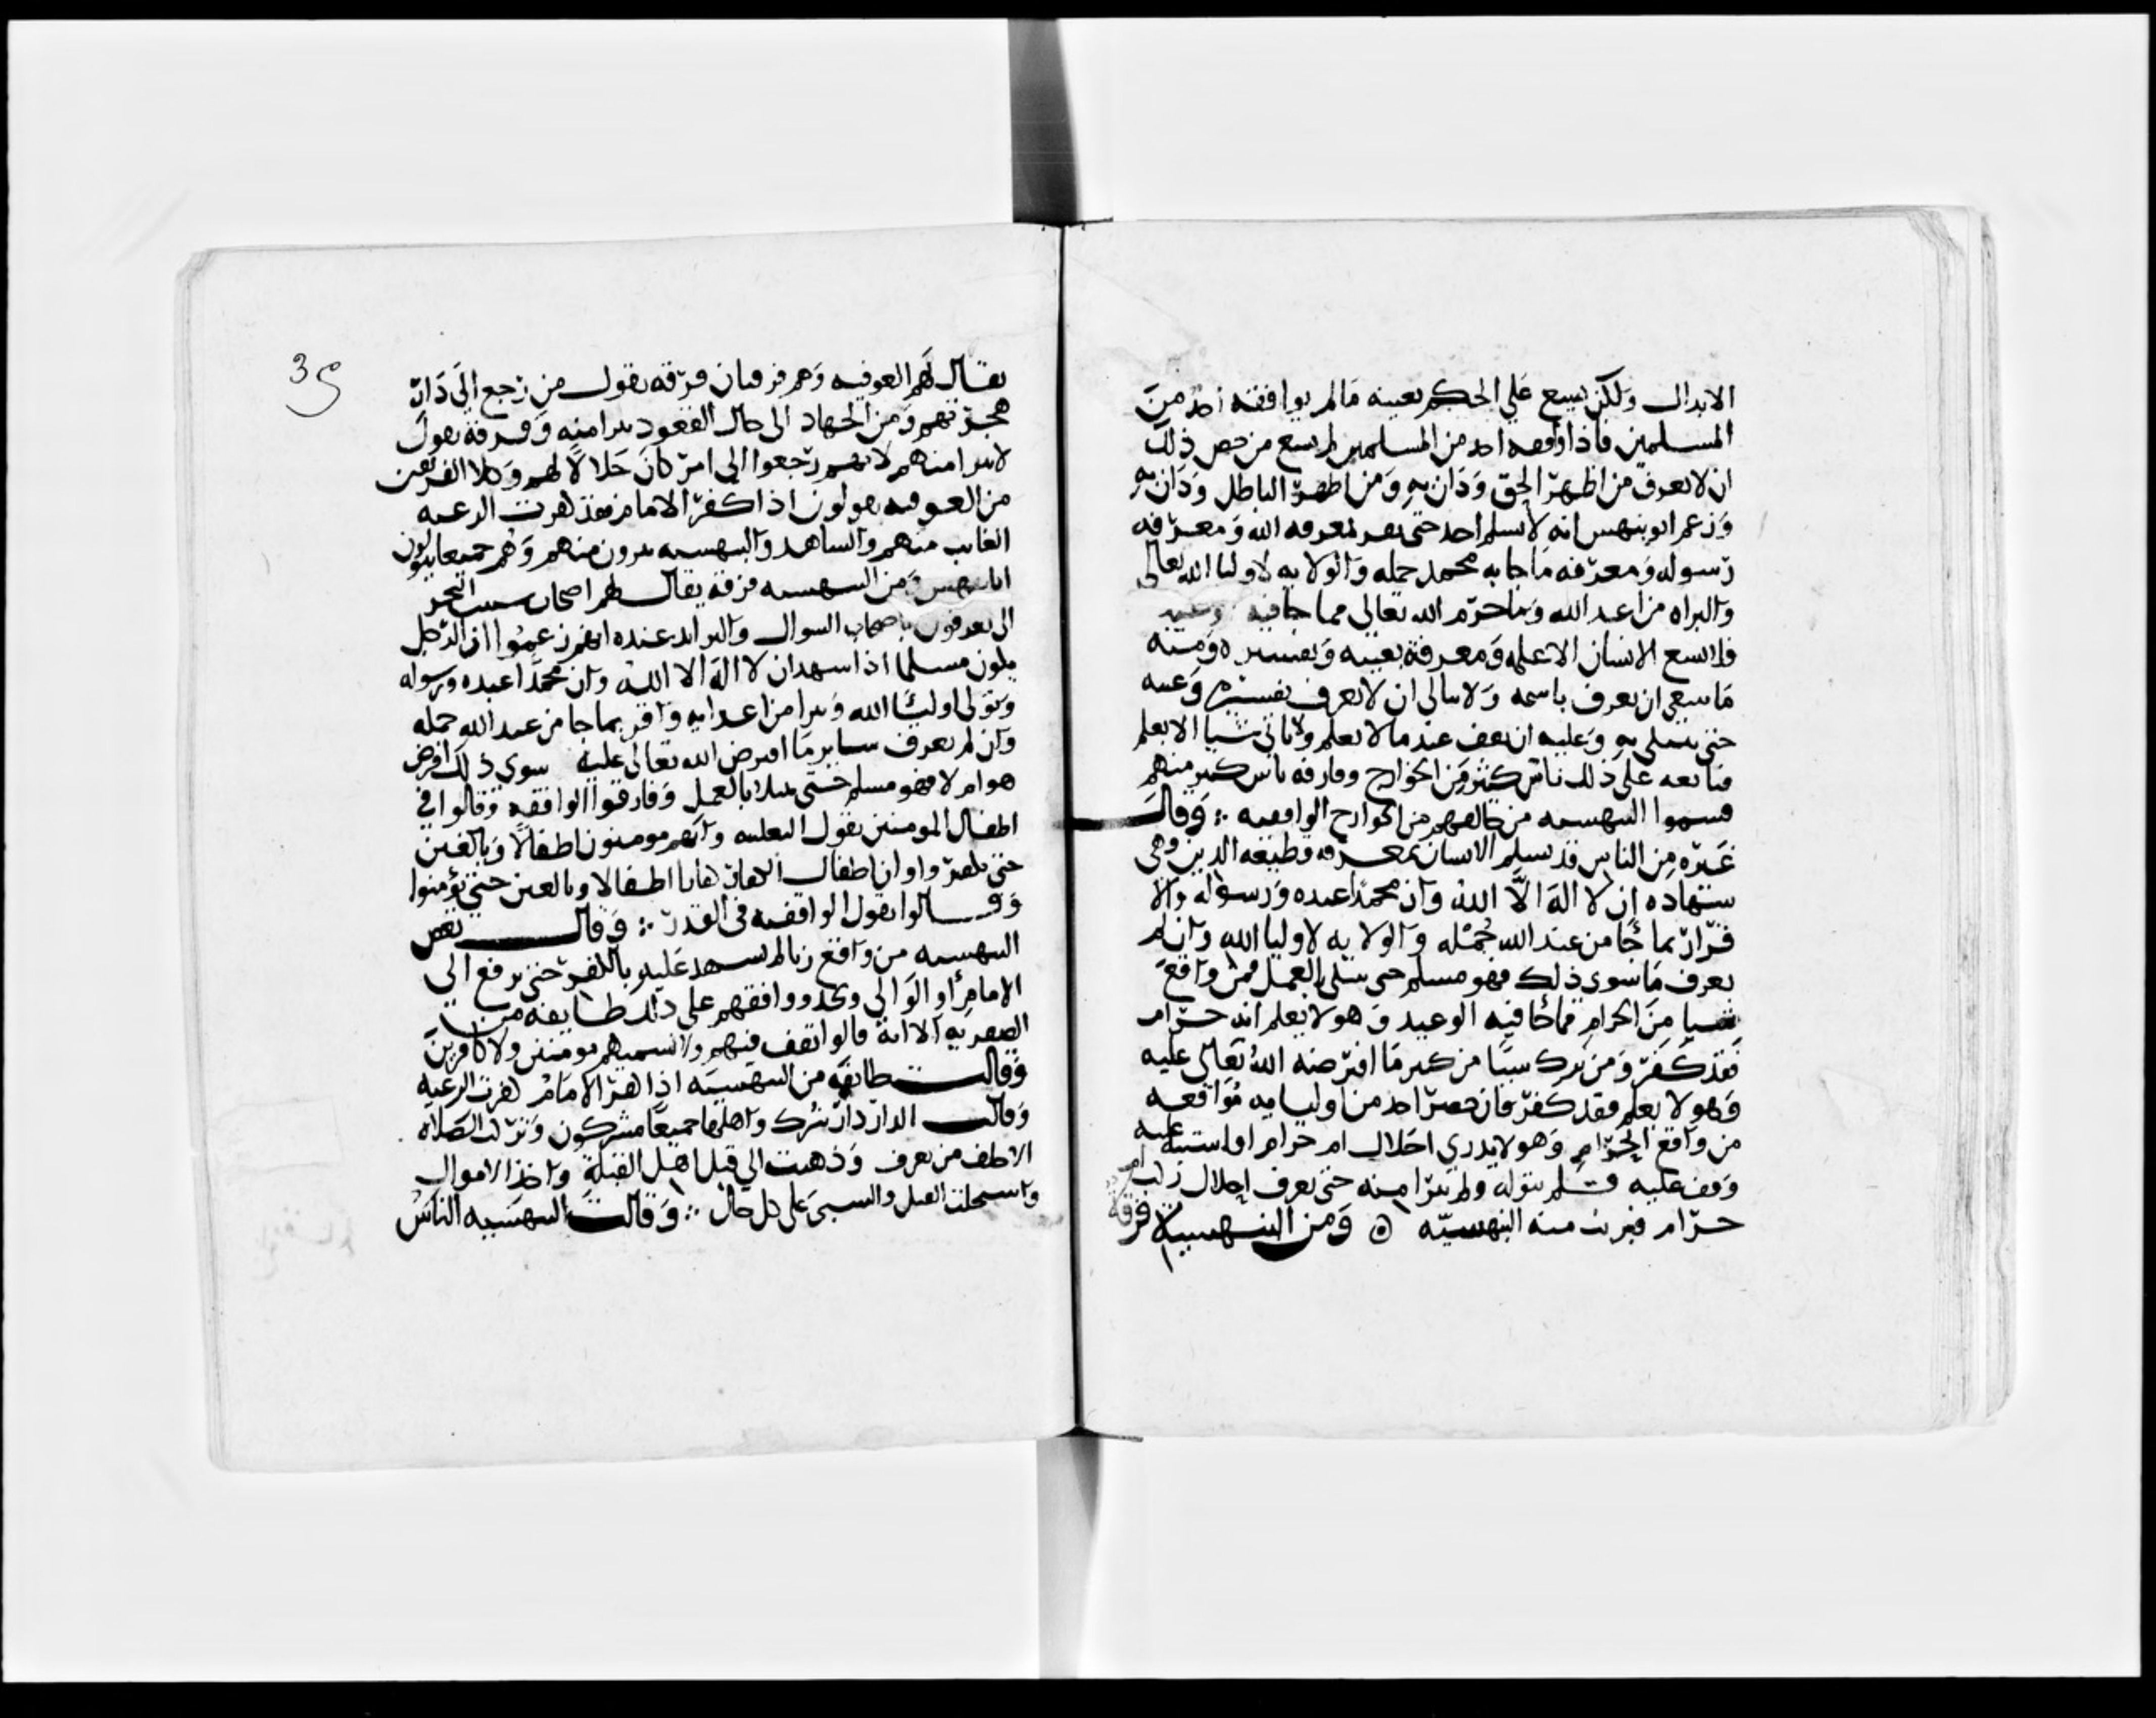 الابدال ولكن يسع علي الحكم بعينه مالم يوافقه احد من
المسلمين فاذا واقعه احد من المسلمين لم يسع من حصر ذلك
ان لا يعرف من اظهر الحق ودان به ومن اظهر الباطل ودان به
وزعم ابو بيهس انه لا يسلم احد حتى يقر بمعرفه الله ومعرفه
رسوله ومعرفه ما جا به محمد جمله والولايه لاوليا الله تعالى
والبراه من اعدا الله وما حرم الله تعالى مما جا فيه
فلا يسع الانسان الا علمه ومعرفة بعينه وتفسيره ومنه
ما ينبغي ان يعرف باسمه ولا يبالي ان لا يعرف تفسيره وعينه
حتى يبتلى به وعليه ان يقف عند ما لا يعلم ولا ياتي شيا الا بعلم
فتابعه على ذلك ناس كثير من الخوارج وفارقه ناس كثير منهم
فسموا البيهسيه من خالفهم من الخوارج الواقفيه ∴ وقال
غيره من الناس قد يسلم الانسان بمعرفه وظيفه الدين وهي
شهاده ان لا اله الا الله وان محمدا عبده ورسوله والا
قرار بما جا من عند الله جمله والولايه لاوليا الله وان لم
يعرف ما سوى ذلك فهو مسلم حتى يبتلى بالعمل فمن واقع
شيا من الحرام مما جا فيه الوعيد وهو لا يعلم انه حرام
فقد كفر ومن ترك شيا من كبير ما افترضه الله تعالى عليه
وهو لا يعلم فقد كفر فان حضر احد من اوليايه مواقعه
من واقع الحرام وهو لا يدري احلال ام حرام او اشتبه عليه
وقف عليه فلم يتوله ولم يتبرا منه حتى يعرف احلال ركب ام
حرام فبرت منه البيهسيه ۞ ومن البيهسيه فرقة
35
يقال لهم العوفيه وهم فرقتان فرقه تقول من رجع الى دار
هجرتهم ومن الجهاد الى حال القعود نبرا منه وفرقة تقول
لا نبرا منهم لانهم رجعوا الي امر كان حلالا لهم وكلا الفريقين
من العوفيه يقولون اذا كفر الامام فقد كفرت الرعيه
الغايب منهم والشاهد والبيهسيه يبرون منهم وهم جميعا يتولون
ابا بيهس ومن البيهسيه فرقة يقال لهم اصحاب شبيب النجر
اني يعرفون باصحاب السوال والبر ابد عنده انهم زعموا ان الرجل
يكون مسلما اذا شهد ان لا اله الا الله وان محمدا عبده ورسوله
وتولى اوليا الله وتبرا من اعدايه واقر بما جا من عند الله جمله
وان لم يعرف ساير ما افترض الله تعالى عليه سوى ذلك افرض
هو ام لا فهو مسلم حتى يبتلا بالعمل وفارقوا الواقفه وقالوا في
اطفال المومنين بقول الثعلبيه وانهم مومنون اطفالا وبالغين
حتى يكفروا وان اطفال الكفار كفارا اطفالا وبالغين حتى يؤمنوا
وقالوا بقول الواقفه في القدر ∴ وقال بعض
البيهسيه من واقع زنا لم يشهد عليه بالكفر حتى يرفع الى
الامام او الوالي ويحد ووافقهم على ذلك طايفه من
الصفريه الا انهم قالوا نقف فيهم ولا نسميهم مومنين ولا كافرين
وقالت طايفه من البيهسيه اذا كفر الامام كفرت الرعيه
وقالت الدار دار شرك واهلها جميعا مشركون وتركت الصلاه
الا خلف من يعرف وذهبت الي قتل اهل القبلة واخذ الاموال
واستحلت القتل والسبي على كل حال ∴ وقالت البيهسيه الناس